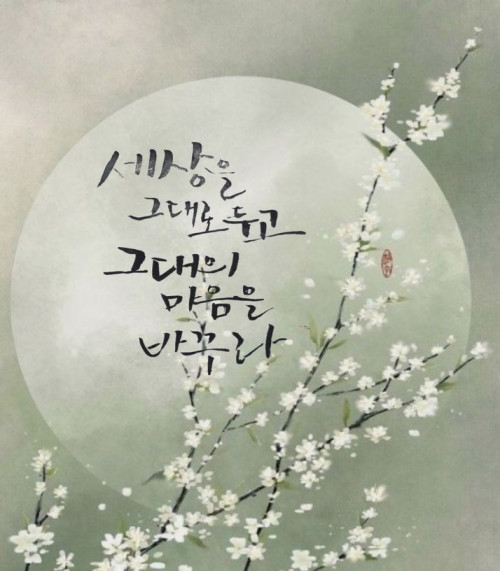 세상을
그대로 두고
그대의
마음을
바꾸라